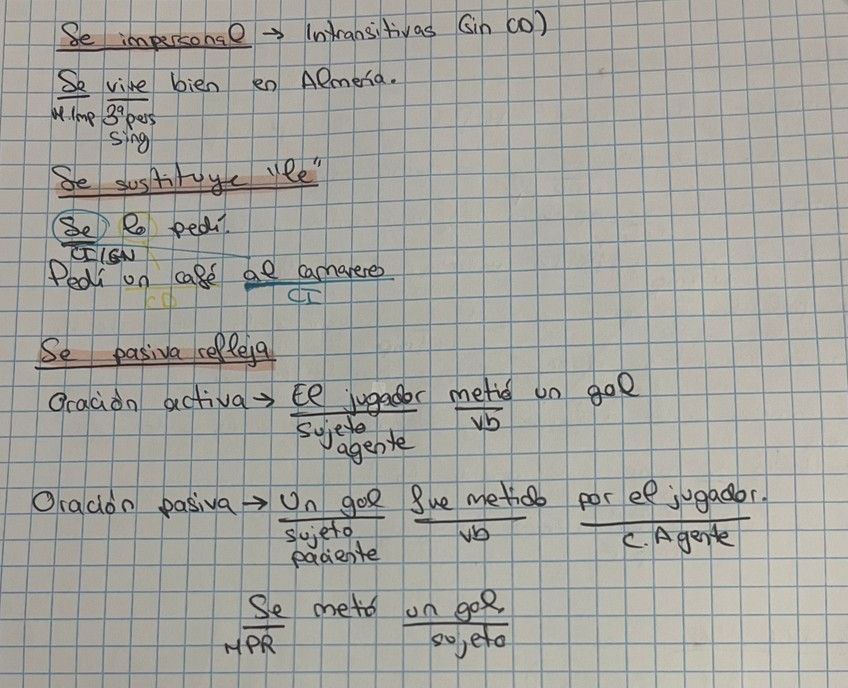 Se impersonal → Intransitivas (sin CD)
Se vive bien en Almería.
M.Imp 3ª pers
sing
Se sustituye "le"
Se lo pedí.
CI/SN
Pedí un café al camarero
CD CI
Se pasiva refleja
Oración activa → El jugador metió un gol
sujeto vb
agente
Oración pasiva → Un gol fue metido por el jugador.
sujeto vb C. Agente
paciente
Se metió un gol
MPR sujeto